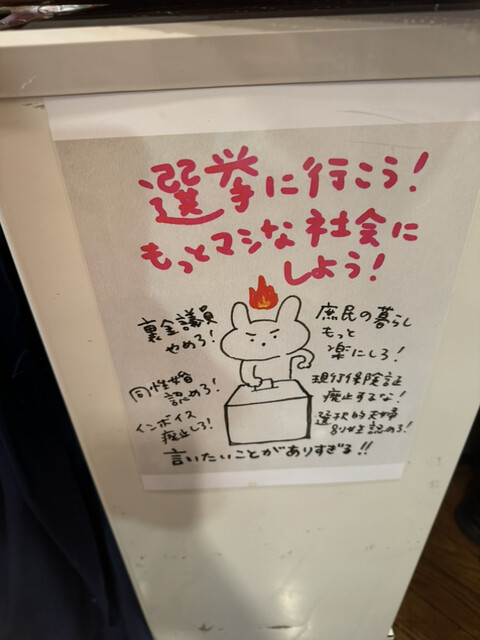 選挙に行こう!
もっとマシな社会に
しよう!
裏金議員
やめろ!
庶民の暮らし
もっと
楽にしろ!
同性婚
認めろ!
現行保険証
廃止するな!
インボイス
廃止しろ!
選択的夫婦
別姓を認めろ!
言いたいことがありすぎる!!